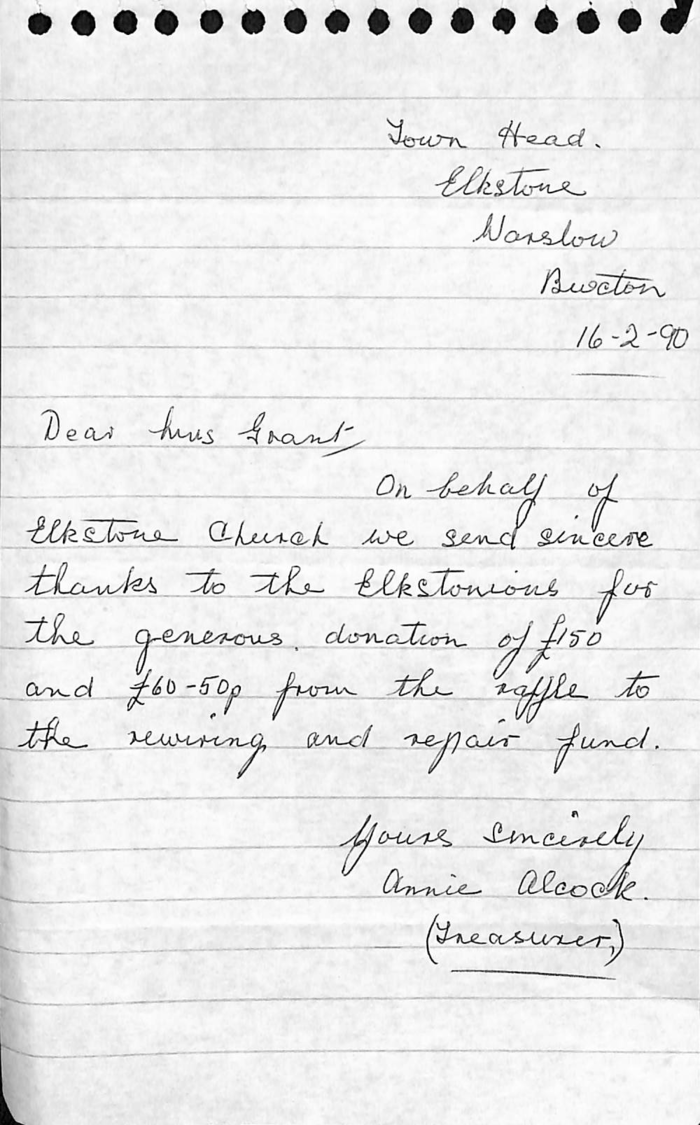 Town Head.
Elkstone
Warslow
Buxton
16-2-90
Dear Mrs Grant
On behalf of
Elkstone Church we send sincere
thanks to the Elkstonious for
the generous donation of £150
and £60-50p from the raffle to
the rewiring and repair fund.
Yours Sincerely
Annie Alcock.
(Treasurer,)